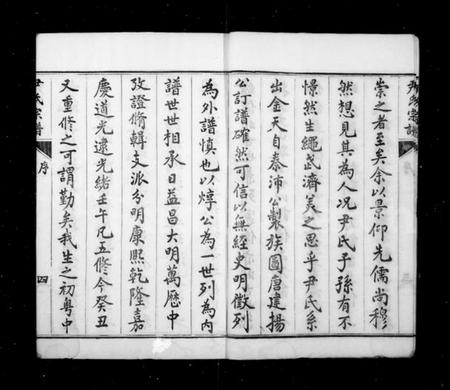 崇之者至矣余以景仰先儒尚穆
然想見其為人况尹氏子孫有不
憬然生繩武濟美之思乎尹氏系
出金天自泰沛公製族圖唐建揚
公訂譜確然可信以無經史明徵列
為外譜慎也以焞公為一世列為内
譜世世相承日益昌大明萬曆中
攷證脩輯支派分明康熙乾隆嘉
慶道光遠光緒壬午凡五修今癸丑
又重修之可謂勤矣我生之初粤中
尹氏宗譜
序
四